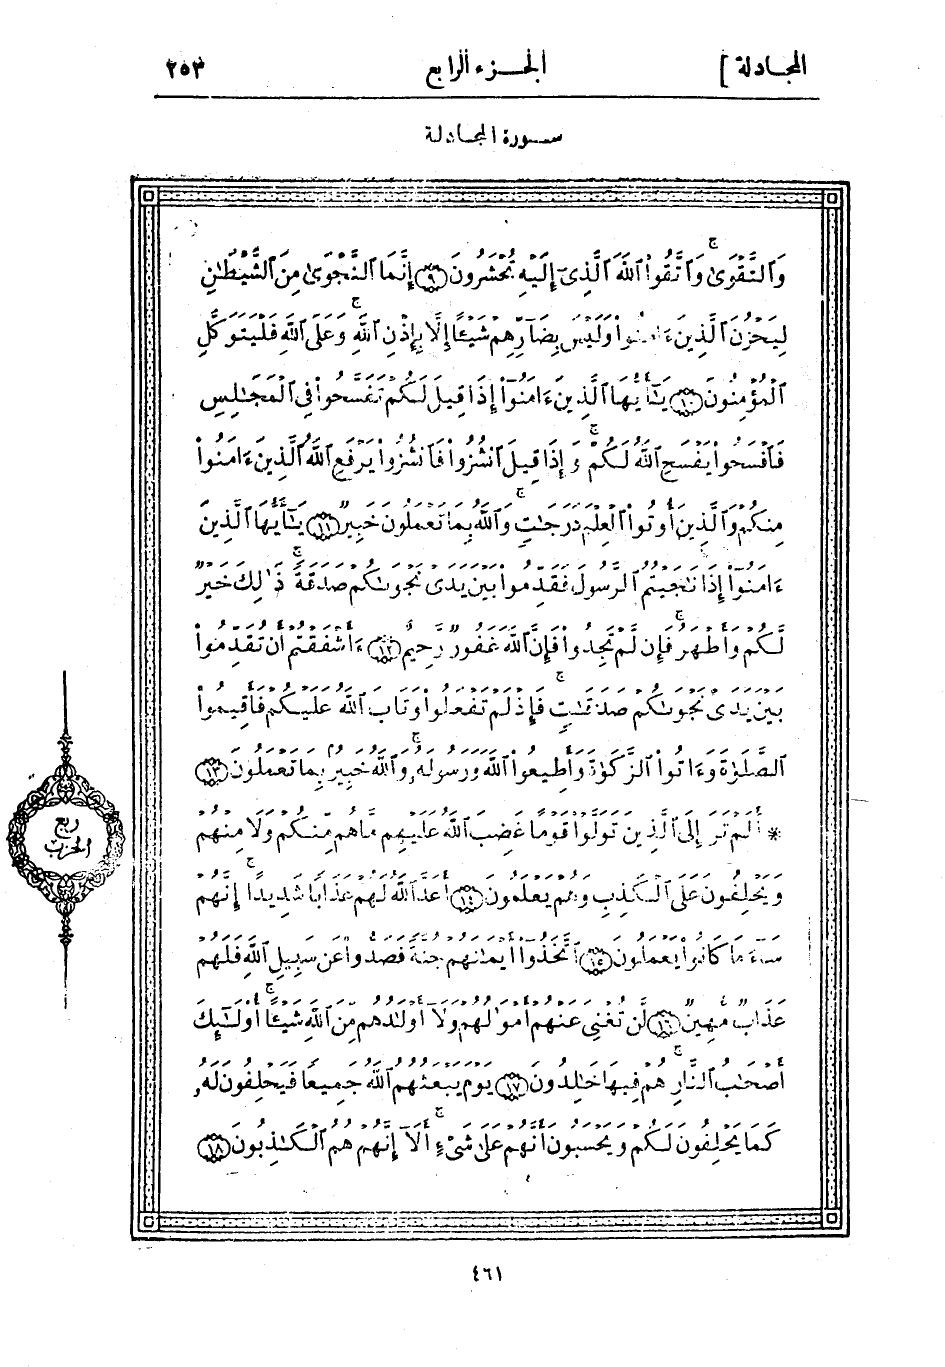 المجادلة ] الجزء الرابع ٢٥٣
سورة المجادلة
وَٱلتَّقْوَىٰۖ وَٱتَّقُوا۟ ٱللَّهَ ٱلَّذِىٓ إِلَيْهِ تُحْشَرُونَ ٩ إِنَّمَا ٱلنَّجْوَىٰ مِنَ ٱلشَّيْطَٰنِ
لِيَحْزُنَ ٱلَّذِينَ ءَامَنُوا۟ وَلَيْسَ بِضَآرِّهِمْ شَيْـًٔا إِلَّا بِإِذْنِ ٱللَّهِۚ وَعَلَى ٱللَّهِ فَلْيَتَوَكَّلِ
ٱلْمُؤْمِنُونَ ١٠ يَٰٓأَيُّهَا ٱلَّذِينَ ءَامَنُوٓا۟ إِذَا قِيلَ لَكُمْ تَفَسَّحُوا۟ فِى ٱلْمَجَٰلِسِ
فَٱفْسَحُوا۟ يَفْسَحِ ٱللَّهُ لَكُمْۚ وَإِذَا قِيلَ ٱنشُزُوا۟ فَٱنشُزُوا۟ يَرْفَعِ ٱللَّهُ ٱلَّذِينَ ءَامَنُوا۟
مِنكُمْ وَٱلَّذِينَ أُوتُوا۟ ٱلْعِلْمَ دَرَجَٰتٍۚ وَٱللَّهُ بِمَا تَعْمَلُونَ خَبِيرٌ ١١ يَٰٓأَيُّهَا ٱلَّذِينَ
ءَامَنُوٓا۟ إِذَا نَٰجَيْتُمُ ٱلرَّسُولَ فَقَدِّمُوا۟ بَيْنَ يَدَىْ نَجْوَىٰكُمْ صَدَقَةًۚ ذَٰلِكَ خَيْرٌ
لَّكُمْ وَأَطْهَرُۚ فَإِن لَّمْ تَجِدُوا۟ فَإِنَّ ٱللَّهَ غَفُورٌ رَّحِيمٌ ١٢ ءَأَشْفَقْتُمْ أَن تُقَدِّمُوا۟
بَيْنَ يَدَىْ نَجْوَىٰكُمْ صَدَقَٰتٍۚ فَإِذْ لَمْ تَفْعَلُوا۟ وَتَابَ ٱللَّهُ عَلَيْكُمْ فَأَقِيمُوا۟
ٱلصَّلَوٰةَ وَءَاتُوا۟ ٱلزَّكَوٰةَ وَأَطِيعُوا۟ ٱللَّهَ وَرَسُولَهُۥۚ وَٱللَّهُ خَبِيرٌۢ بِمَا تَعْمَلُونَ ١٣
* أَلَمْ تَرَ إِلَى ٱلَّذِينَ تَوَلَّوْا۟ قَوْمًا غَضِبَ ٱللَّهُ عَلَيْهِم مَّا هُم مِّنكُمْ وَلَا مِنْهُمْ
وَيَحْلِفُونَ عَلَى ٱلْكَذِبِ وَهُمْ يَعْلَمُونَ ١٤ أَعَدَّ ٱللَّهُ لَهُمْ عَذَابًا شَدِيدًاۚ إِنَّهُمْ
سَآءَ مَا كَانُوا۟ يَعْمَلُونَ ١٥ ٱتَّخَذُوٓا۟ أَيْمَٰنَهُمْ جُنَّةً فَصَدُّوا۟ عَن سَبِيلِ ٱللَّهِ فَلَهُمْ
عَذَابٌ مُّهِينٌ ١٦ لَّن تُغْنِىَ عَنْهُمْ أَمْوَٰلُهُمْ وَلَآ أَوْلَٰدُهُم مِّنَ ٱللَّهِ شَيْـًٔاۚ أُو۟لَٰٓئِكَ
أَصْحَٰبُ ٱلنَّارِۚ هُمْ فِيهَا خَٰلِدُونَ ١٧ يَوْمَ يَبْعَثُهُمُ ٱللَّهُ جَمِيعًا فَيَحْلِفُونَ لَهُۥ
كَمَا يَحْلِفُونَ لَكُمْ وَيَحْسَبُونَ أَنَّهُمْ عَلَىٰ شَىْءٍۚ أَلَآ إِنَّهُمْ هُمُ ٱلْكَٰذِبُونَ ١٨
ربع
الحزب
٤٦١